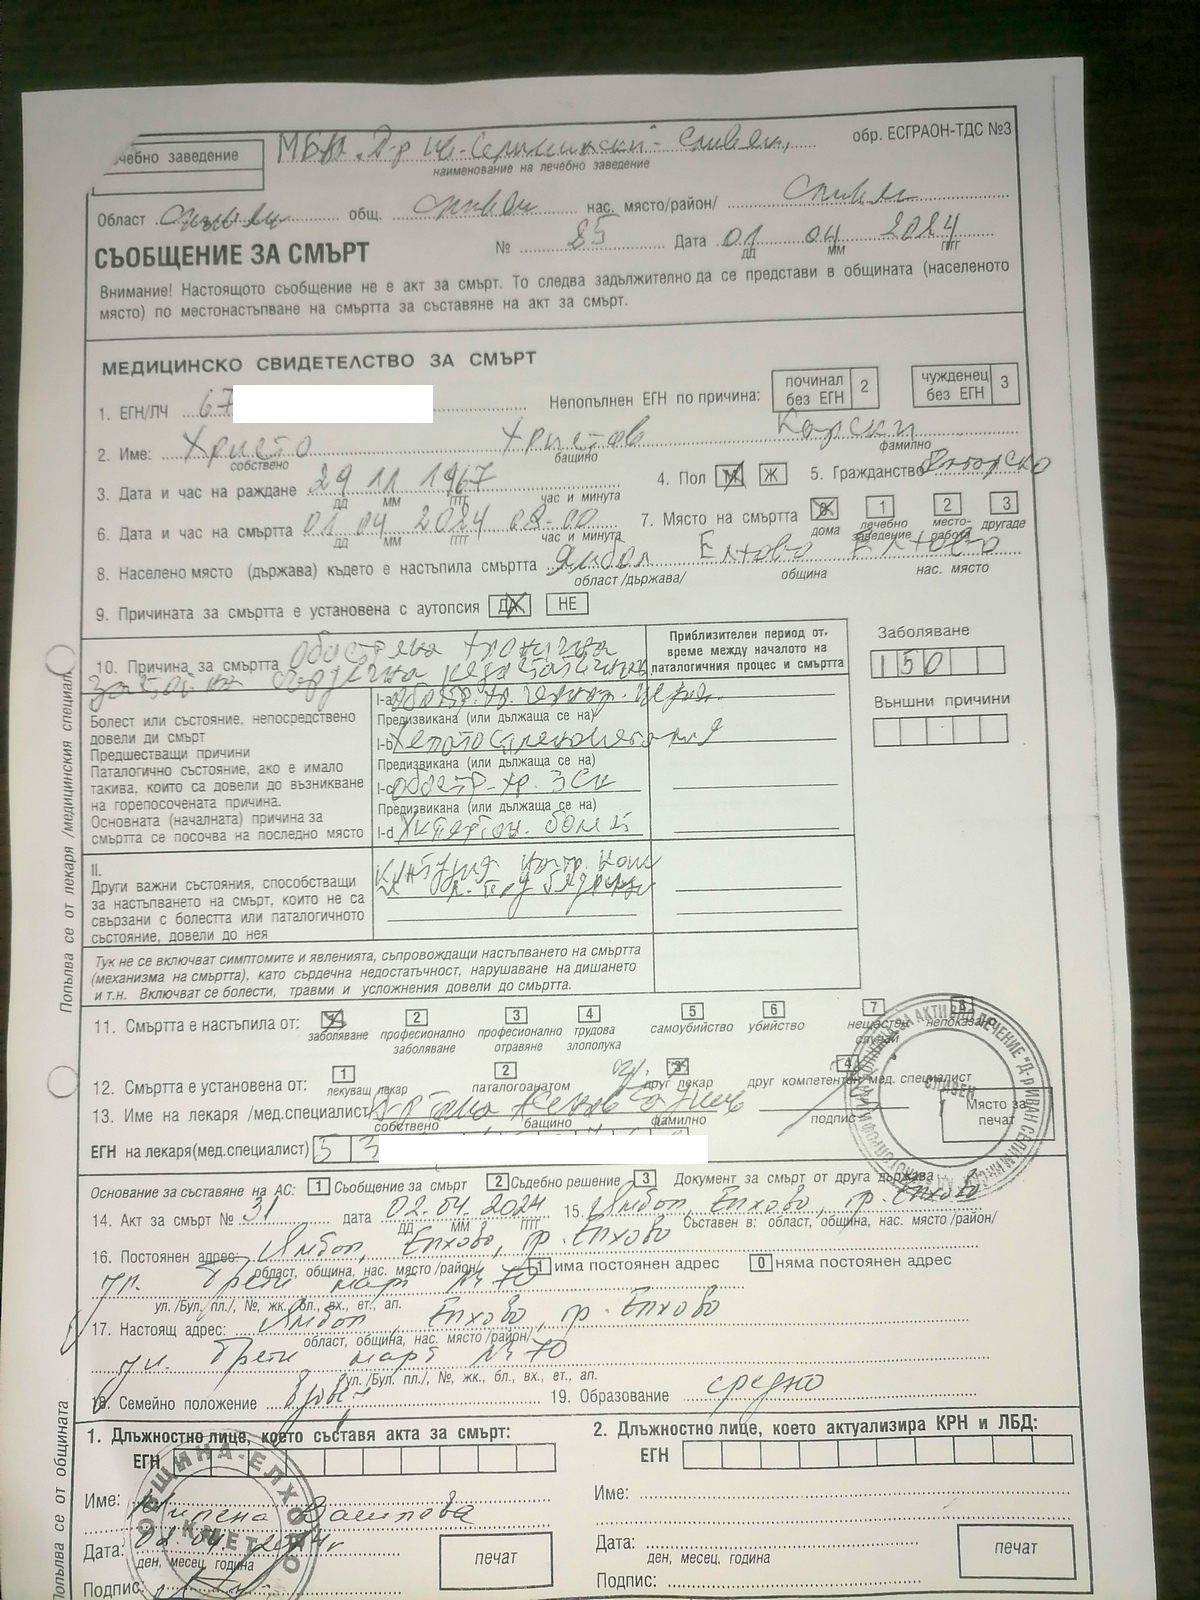 чебно заведение
МБАЛ "Д-р Ив. Селимински" - Сливен,
обр. ЕСГРАОН-ТДС №3
наименование на лечебно заведение
Област Сливен общ. Сливен нас. място/район/ Сливен
СЪОБЩЕНИЕ ЗА СМЪРТ № 85 Дата 01 04 2024
ДД ММ ГГГГ
Внимание! Настоящото съобщение не е акт за смърт. То следва задължително да се представи в общината (населеното
място) по местонастъпване на смъртта за съставяне на акт за смърт.
МЕДИЦИНСКО СВИДЕТЕЛСТВО ЗА СМЪРТ
1. ЕГН/ЛЧ 67 Непопълнен ЕГН по причина: починал без ЕГН 2 чужденец без ЕГН 3
2. Име: Христо Христов Карски
собствено бащино фамилно
3. Дата и час на раждане 29 11 1967 4. Пол М Ж 5. Гражданство
ДД ММ ГГГГ час и минута
6. Дата и час на смъртта 01 04 2024 08-00 7. Място на смъртта 0 1 2 3
ДД ММ ГГГГ час и минута дома лечебно заведение место-работа другаде
8. Населено място (държава) където е настъпила смъртта Ямбол Елхово Елхово
област /държава/ община нас. място
9. Причината за смъртта е установена с аутопсия ДА НЕ
10. Причина за смъртта обострена хронична
застойна сърдечна недостатъчност
Приблизителен период от, време между началото на паталогичния процес и смъртта
Заболяване
150
Външни причини
Болест или състояние, непосредствено довели ди смърт
Предшестващи причини
Паталогично състояние, ако е имало такива, които са довели до възникване на горепосочената причина.
Основната (началната) причина за смъртта се посочва на последно място
I-a
Предизвикана (или дължаща се на)
I-b Хепатоспленомегалия
Предизвикана (или дължаща се на)
I-c обостр. хр. ЗСН
Предизвикана (или дължаща се на)
I-d Хипертон. болест
II.
Други важни състояния, способстващи за настъпването на смърт, които не са свързани с болестта или паталогичното състояние, довели до нея
Тук не се включват симптомите и явленията, съпровождащи настъпването на смъртта
(механизма на смъртта), като сърдечна недостатъчност, нарушаване на дишането
и т.н. Включват се болести, травми и усложнения довели до смъртта.
11. Смъртта е настъпила от: 1 2 3 4 5 6 7 8
заболяване професионално заболяване професионално отравяне трудова злополука самоубийство убийство нещастен случай непоказан
12. Смъртта е установена от: 1 2 3 4
лекуващ лекар паталогоанатом друг лекар друг компетентен мед. специалист
13. Име на лекаря /мед.специалист
собствено бащино фамилно подпис Място за печат
СЛИВЕН
ЕГН на лекаря(мед.специалист) 5 3
Основание за съставяне на АС: 1 Съобщение за смърт 2 Съдебно решение 3 Документ за смърт от друга държава
14. Акт за смърт № 31 дата 02.04.2024 15. Ямбол, Елхово, гр. Елхово
ДД ММ ГГГГ Съставен в: област, община, нас. място /район/
16. Постоянен адрес: Ямбол, Елхово, гр. Елхово
област, община, нас. място /район/ 1 има постоянен адрес 0 няма постоянен адрес
ул. Трети март № 70
ул. /Бул. пл./, №, жк., бл., вх., ет., ап.
17. Настоящ адрес: Ямбол, Елхово, гр. Елхово
област, община, нас. място /район/
ул. Трети март № 70
ул. /Бул. пл./, №, жк., бл., вх., ет., ап.
18. Семейно положение 19. Образование средно
1. Длъжностно лице, което съставя акта за смърт:
ЕГН
Име: Милена Василова
Дата: 02.04.2024г
ден, месец, година
печат
Подпис:
ОБЩИНА-ЕЛХОВО
КМЕТ
2. Длъжностно лице, което актуализира КРН и ЛБД:
ЕГН
Име:
Дата:
ден, месец, година
печат
Подпис:
Попълва се от лекаря /медицинския специал.
Попълва се от общината